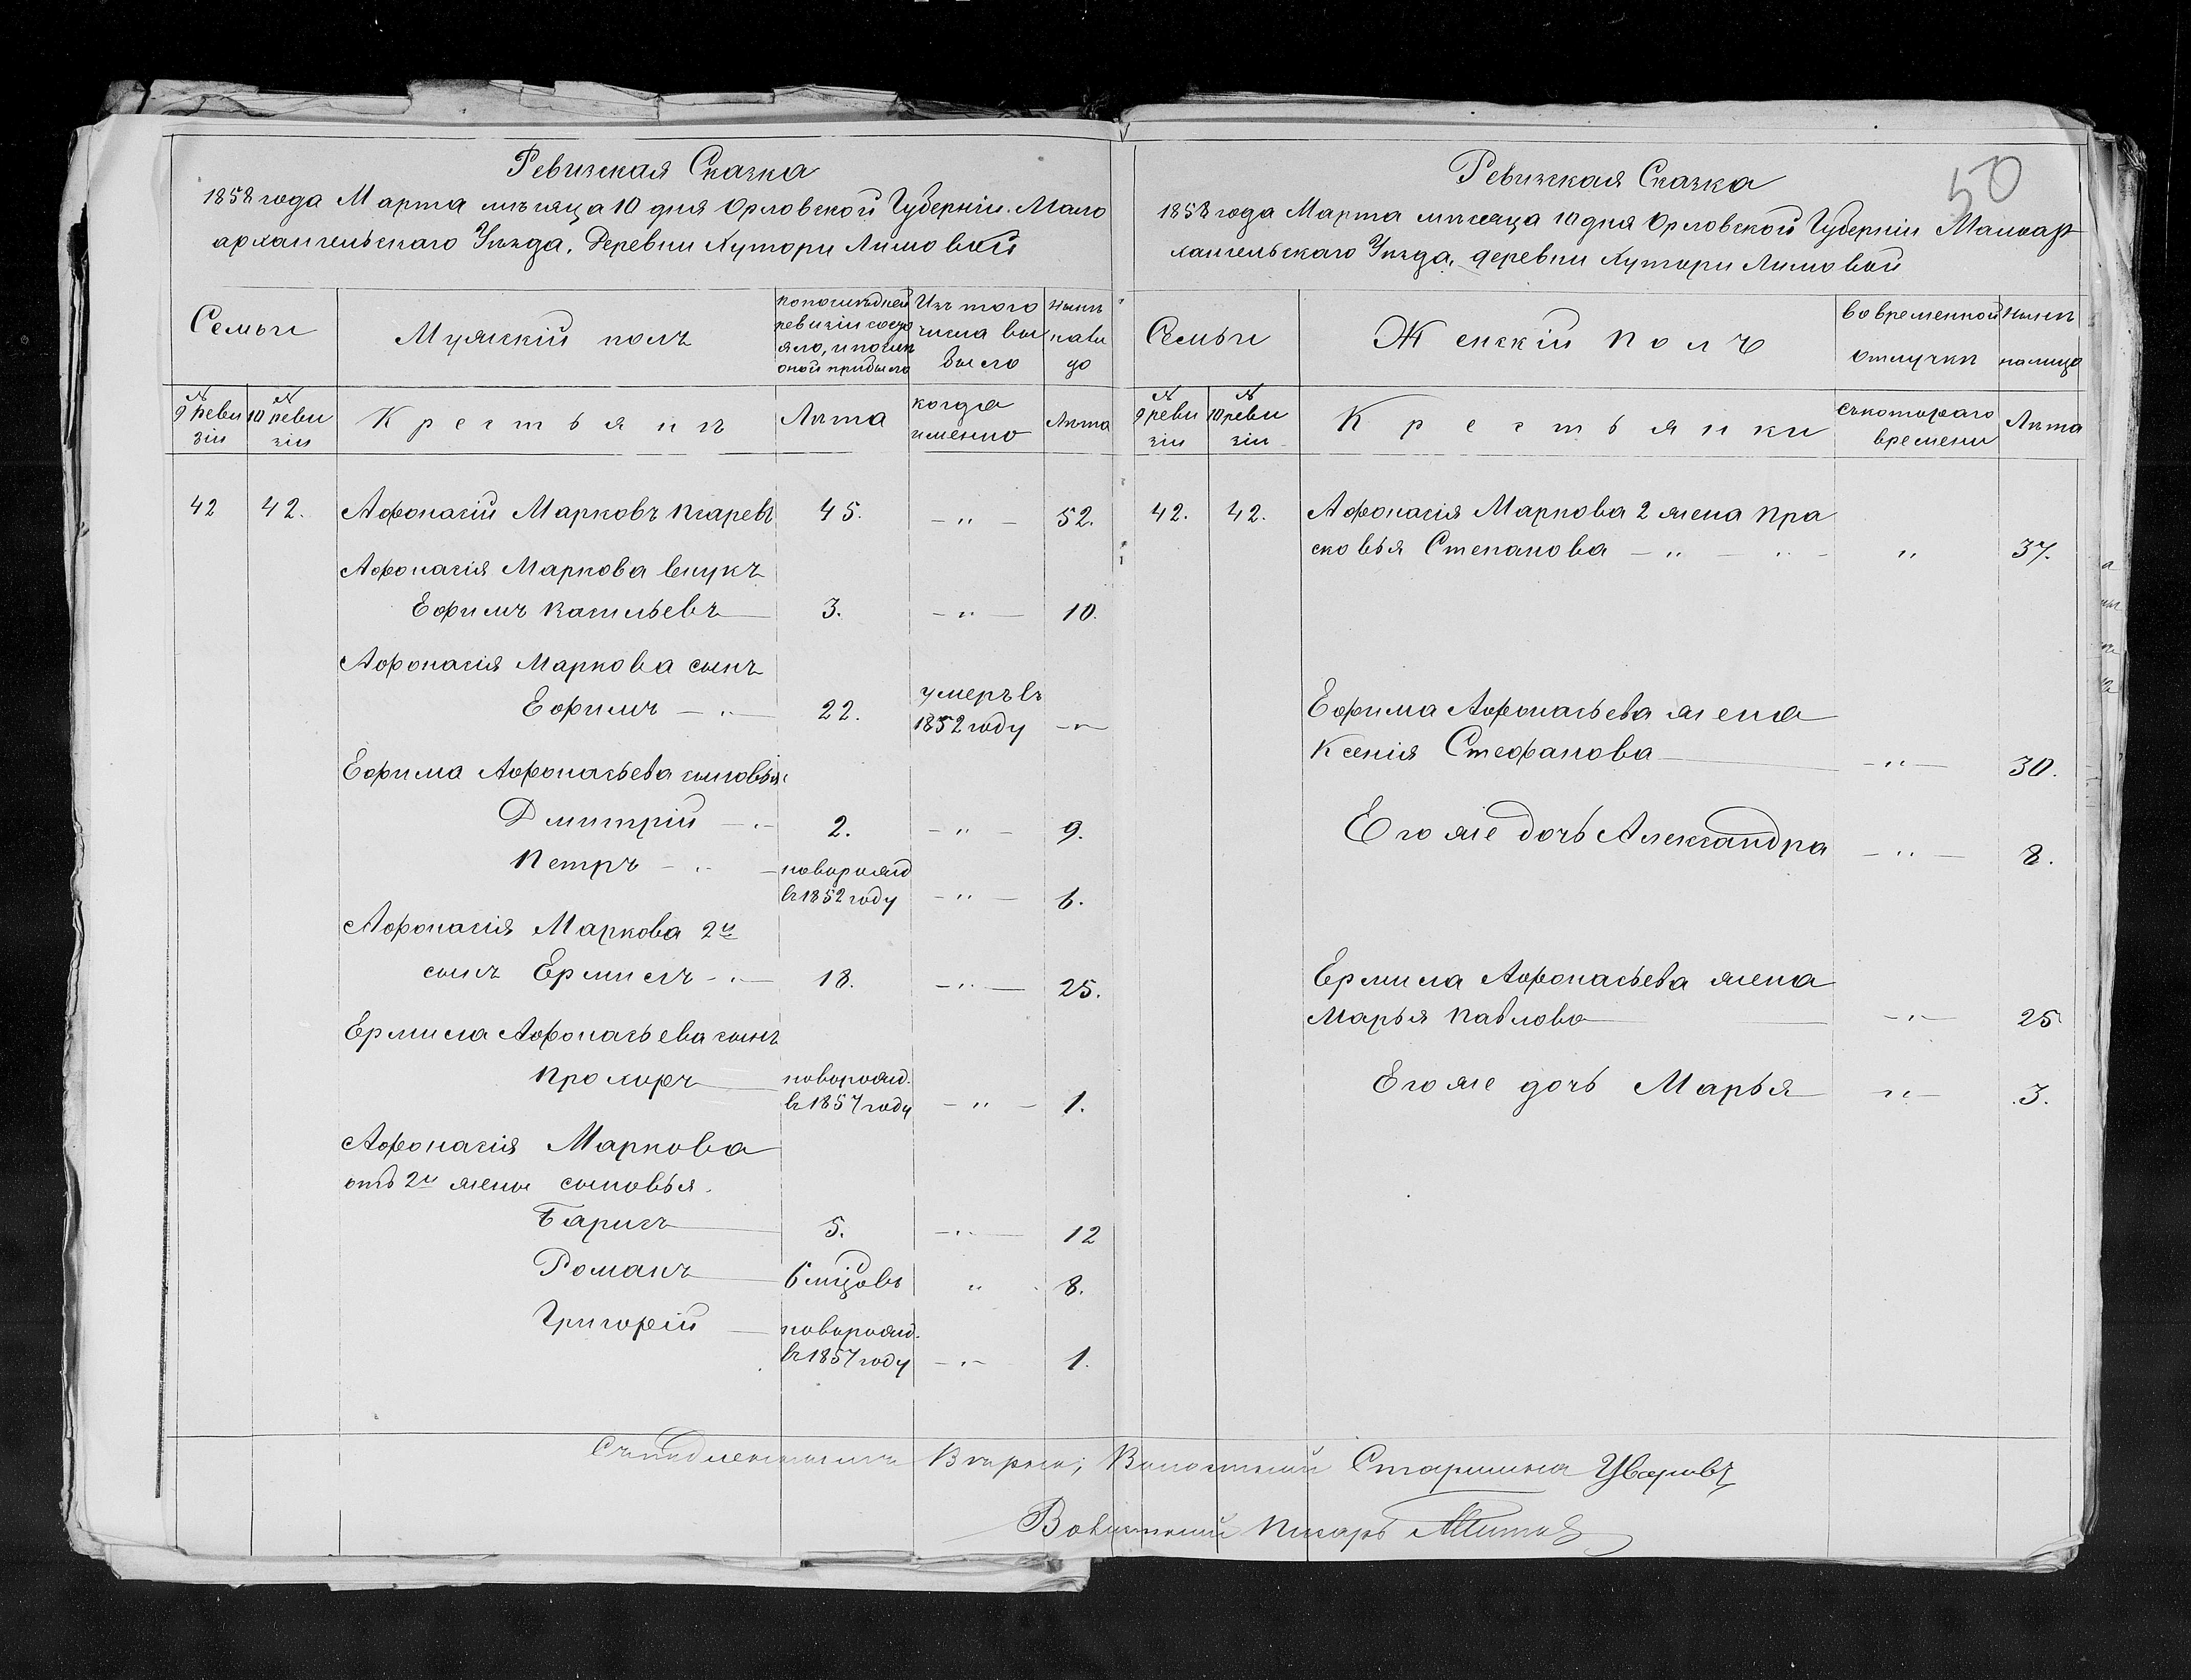 Ревизская Сказка
1858 года Марта мѣсяца 10 дня Орловской Губерніи. Мало
архангельскаго Уѣзда. Деревни Хутори Лимовой
Семьи
Мужскій полъ
попослѣдней
ревизіи состо
яло, и послѣ
оной прибыло
Изъ того
числа вы
было
Нынѣ
нали
цо
№
9 реви
зіи
№
10 реви
зіи
Крестьянъ
Лѣта
когда
именно
Лѣта
42 42. Афонасій Марковъ 45. — " — 52.
Афонасія Маркова внукъ
Ефимъ Васильевъ 3. — " — 10.
Афонасія Маркова сынъ
Ефимъ — " — 22. умеръ въ
1852 году — " —
Ефима Афонасьева сыновья:
Дмитрій — " — 2. — " — 9.
Петръ — " — новорожд
въ 1852 году — " — 6.
Афонасія Маркова 2й
сынъ Ермилъ — " — 18. — " — 25.
Ермила Афонасьева сынъ
Прохоръ новорожд.
въ 1857 году — " — 1.
Афонасія Маркова
отъ 2й жены сыновья.
Барисъ 5. — " — 12
Романъ 6 мѣцовъ " 8.
Григорій новорожд.
въ 1857 году — " — 1.
50
Ревизская Сказка
1858 года Марта мѣсяца 10 дня Орловской Губерніи Малоар
хангельскаго Уѣзда, деревни Хутори Лимовой
Семьи
Женскій полъ
во временной
отлучкѣ
Нынѣ
налицо
№
9 реви
зіи
№
10 реви
зіи
Крестьянки
съ котораго
времени
Лѣта
42. 42. Афонасія Маркова 2 жена Пра
сковья Степанова — " — " — " 37.
Ефима Афонасьева жена
Ксенія Стефанова — " — 30.
Его же дочь Александра — " — 8.
Ермила Афонасьева жена
Марья Павлова — " — 25
Его же дочь Марья — " — 3.
Съ подлиннымъ Вѣрно; Волостный Старшина Уваровъ
Волостный Писарь